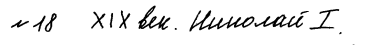 № 18 XIX век. Николай I.